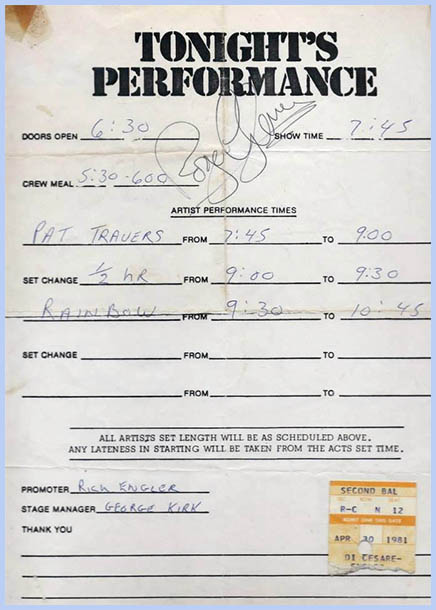 TONIGHT'S
PERFORMANCE
DOORS OPEN 6:30 SHOW TIME 7:45
CREW MEAL 5:30-600
ARTIST PERFORMANCE TIMES
PAT TRAVERS FROM 7:45 TO 9:00
SET CHANGE 1/2 HR FROM 9:00 TO 9:30
RAINBOW FROM 9:30 TO 10:45
SET CHANGE FROM TO
FROM TO
ALL ARTISTS SET LENGTH WILL BE AS SCHEDULED ABOVE.
ANY LATENESS IN STARTING WILL BE TAKEN FROM THE ACTS SET TIME.
PROMOTER RICH ENGLER
STAGE MANAGER GEORGE KIRK
THANK YOU
SECOND BAL
R-C N 12
ADMIT ONE THIS DATE
APR 30 1981
DI CESARE-